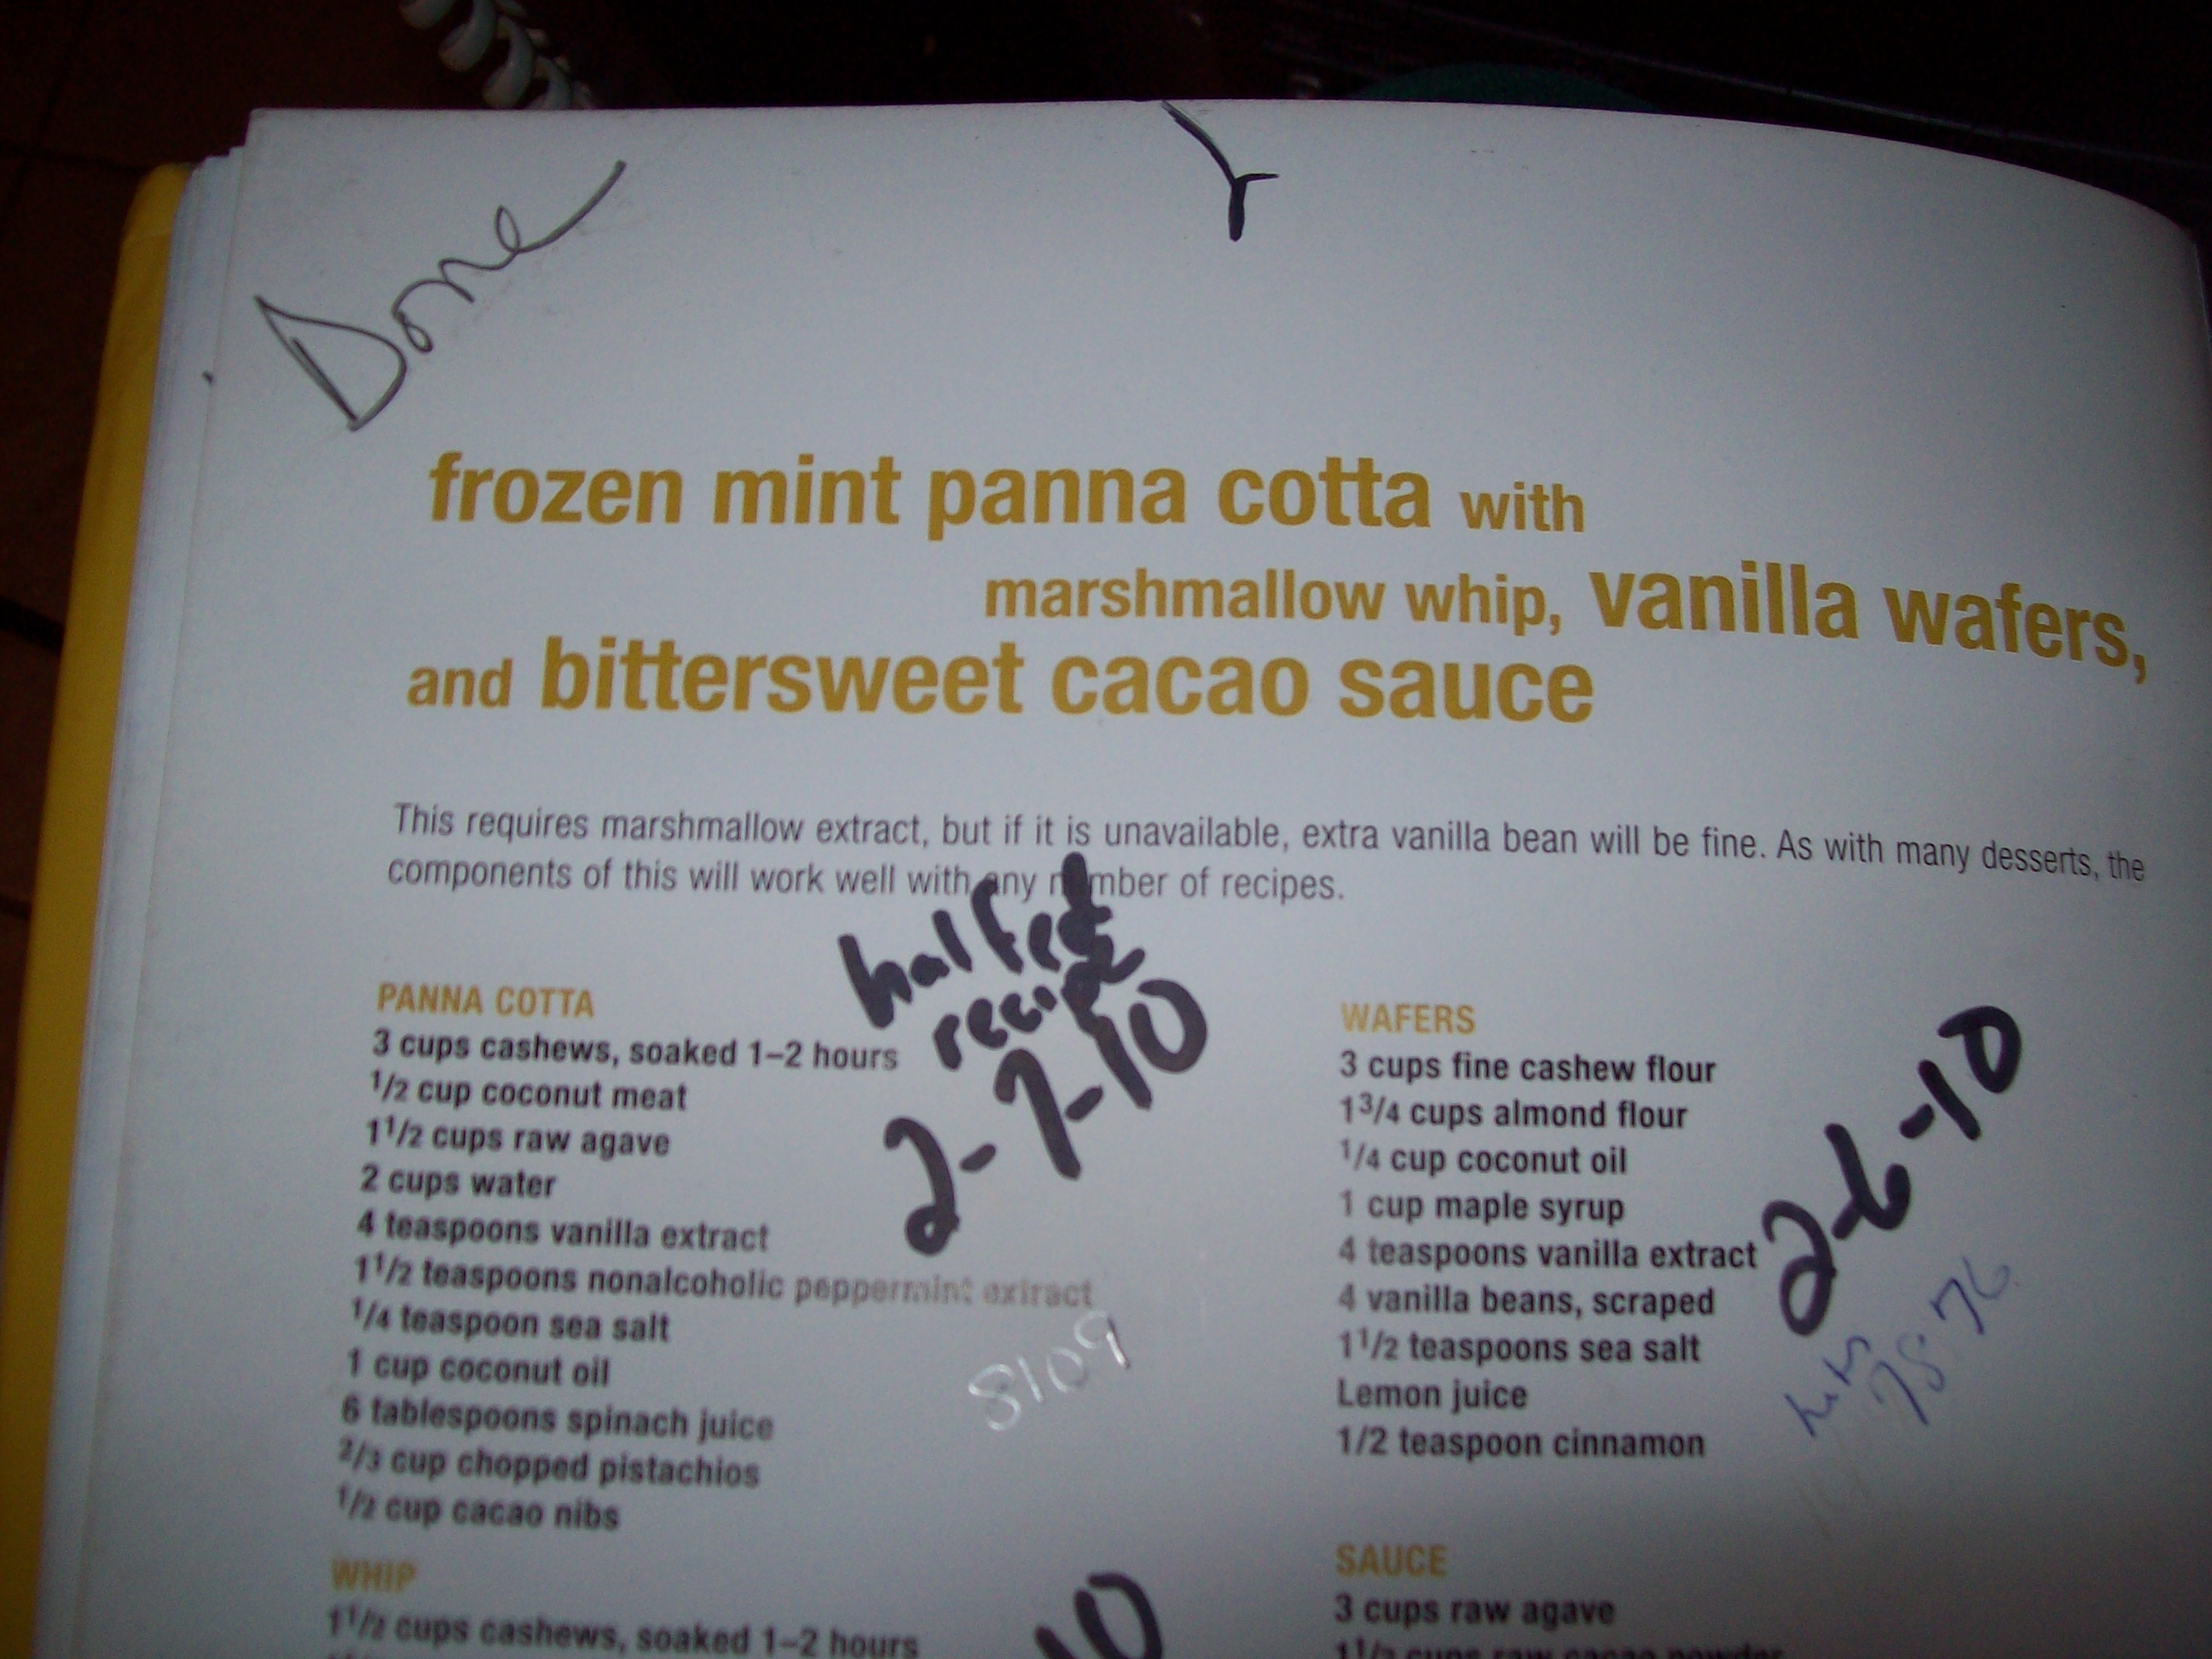 Done
Y
frozen mint panna cotta with
marshmallow whip, vanilla wafers,
and bittersweet cacao sauce
This requires marshmallow extract, but if it is unavailable, extra vanilla bean will be fine. As with many desserts, the
components of this will work well with any number of recipes.
halfed
recipe
2-7-10
PANNA COTTA
3 cups cashews, soaked 1–2 hours
1/2 cup coconut meat
1 1/2 cups raw agave
2 cups water
4 teaspoons vanilla extract
1 1/2 teaspoons nonalcoholic peppermint extract
1/4 teaspoon sea salt
1 cup coconut oil
6 tablespoons spinach juice
2/3 cup chopped pistachios
1/2 cup cacao nibs
8109
WHIP
1 1/2 cups cashews, soaked 1–2 hours
10
WAFERS
3 cups fine cashew flour
1 3/4 cups almond flour
1/4 cup coconut oil
1 cup maple syrup
4 teaspoons vanilla extract
4 vanilla beans, scraped
1 1/2 teaspoons sea salt
Lemon juice
1/2 teaspoon cinnamon
2-6-10
78-76
SAUCE
3 cups raw agave
cups raw cacao powder